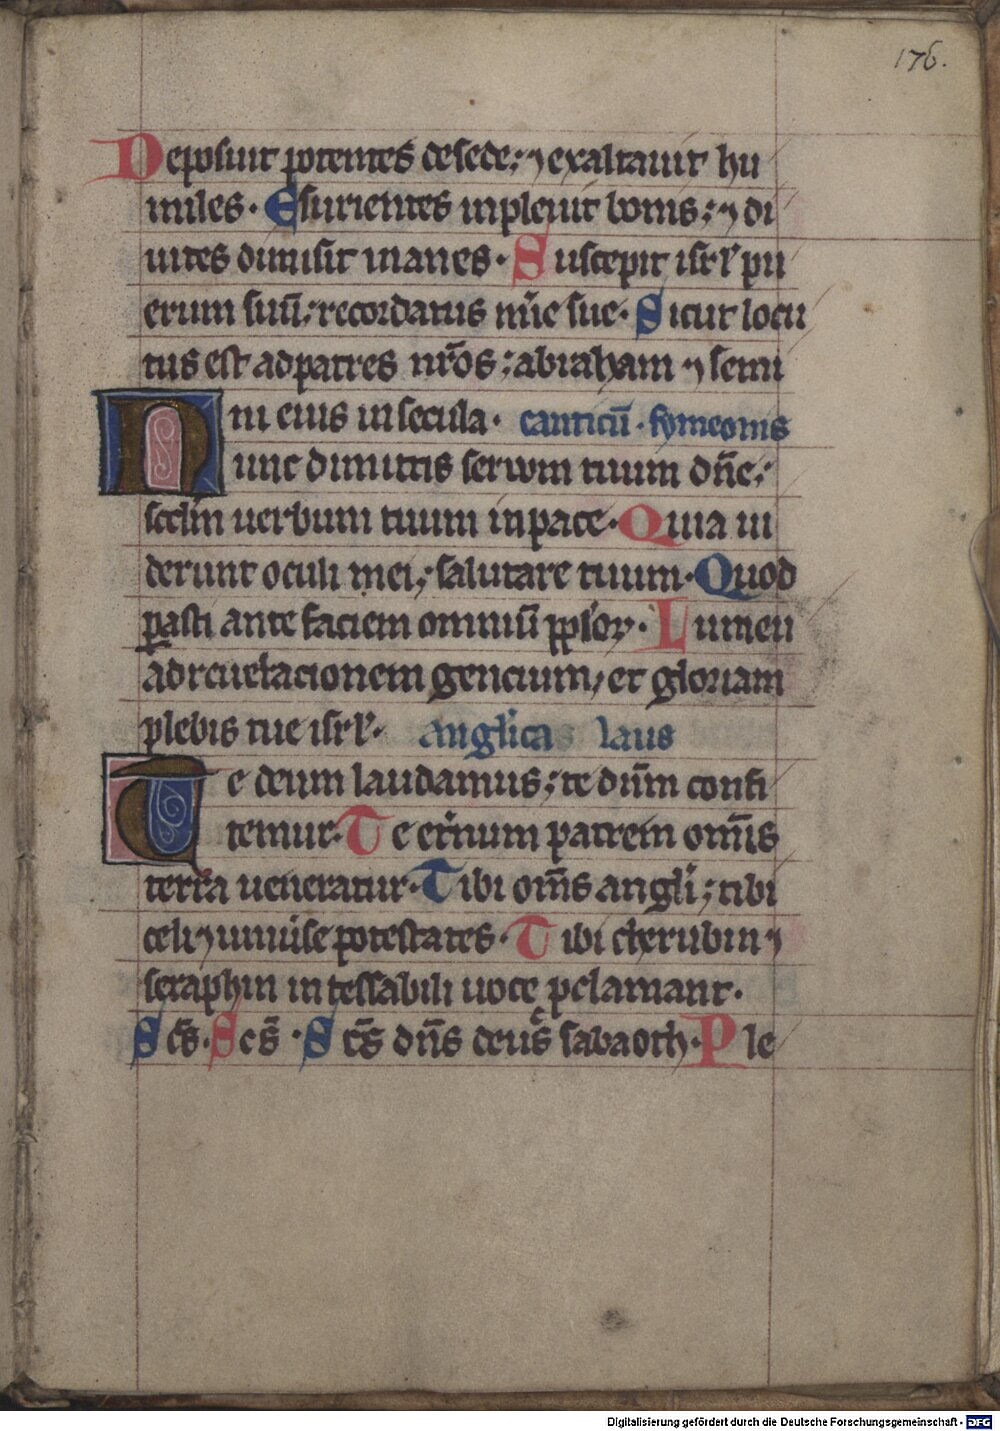 176.
Deposuit potentes de sede; ⁊ exaltauit hu
miles. Esurientes inpleuit bonis; ⁊ di
uites dimisit inanes. Suscepit isrl̄ pu
erum suū; recordatus mīe sue. Sicut locu
tus est ad patres nr̄os; abraham ⁊ semi
ni eius in secula. canticū. symeonis
Nunc dimittis seruum tuum dn̄e;
sc̄dm uerbum tuum in pace. Quia ui
derunt oculi mei; salutare tuum. Quod
ꝑasti ante faciem omniū pp̄lor̄. Lumen
ad reuelacionem gencium, et gloriam
plebis tue isrl̄. anglica laus
Te deum laudamus; te dn̄m confi
temur. Te et̄num patrem om̄is
terra ueneratur. Tibi om̄s angli; tibi
celi ⁊ uniuīse potestates. Tibi cherubin ⁊
seraphin incessabili uoce ꝓclamant.
Sc̄s. Sc̄s. Sc̄s dn̄s deus sabaoth. Ple
Digitalisierung gefördert durch die Deutsche Forschungsgemeinschaft - DFG